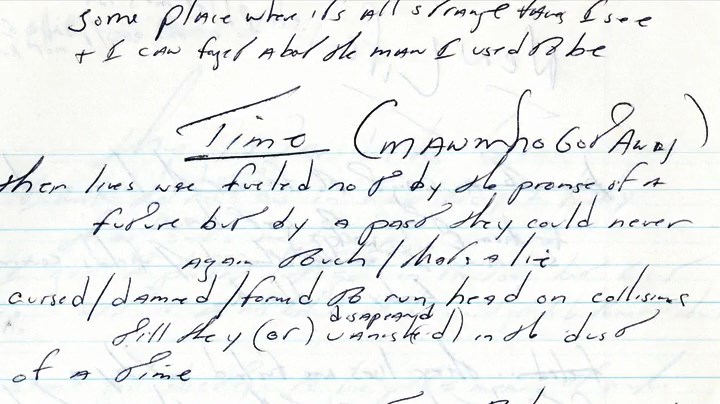 some place where it's all strange things I see
+ I can forget about the man I used to be
Time (man who Got Away)
their lives was fueled not by the promise of a
future but by a past they could never
again touch / that's a lie
cursed/damned/forced to run, head on collisions
till they (or) vanish(ed) in the dust
disappeared
of a time